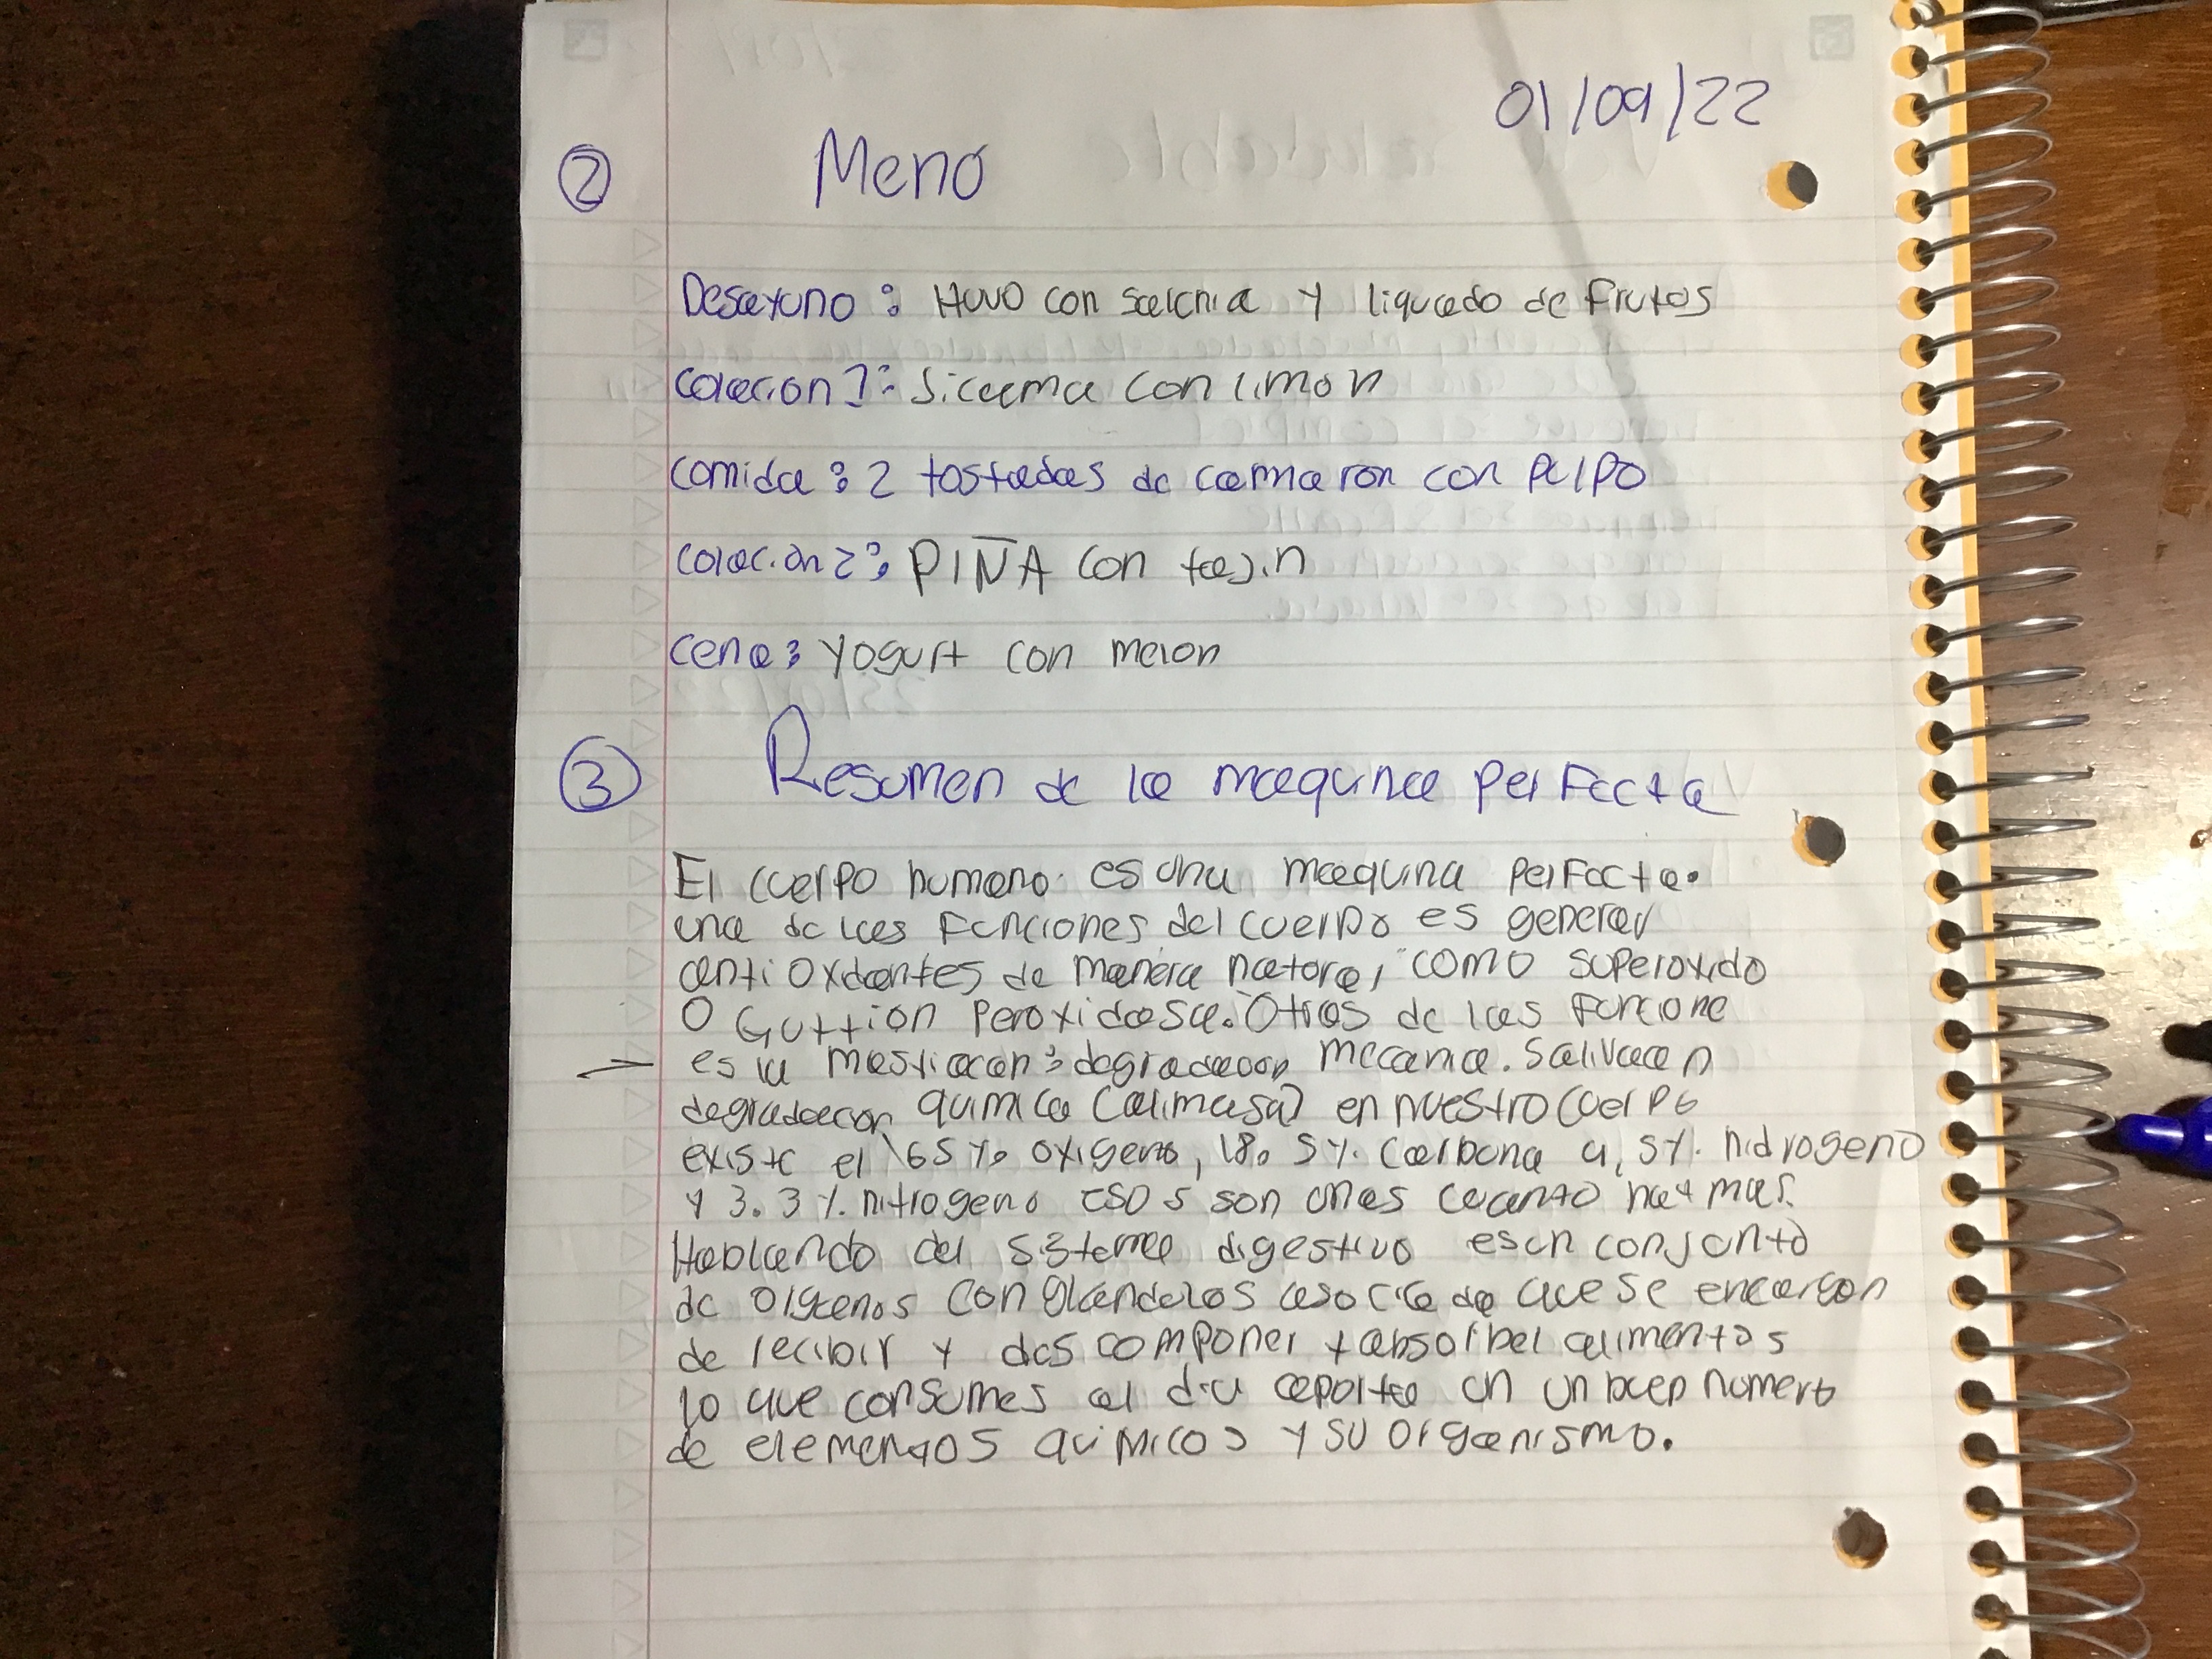 01/09/22
② Menó
Desayuno: Huvo con salchia y liquado de frutas
Colacion 1: Sicama con limon
Comida: 2 tostadas de camaron con pulpo
Colacion 2: PIÑA con tajin
Cena: Yogurt con melon
③ Resumen de la maquina perfecta
El cuerpo humano es una maquina perfecta.
una de las funciones del cuerpo es generar
antioxidantes de manera natural como superoxido
o Guttion peroxidasa. Otras de las funcione
es la : degradacion mecanica.
degradacion quimica (alimasa) en nuestro cuerpo
existe el 65% oxigeno, 18.5%. Carbona 9,5%. hidrogeno
y 3.3%. nitrogeno esos son unas cuanto hay mas.
Hablando del sistema digestivo es un conjunto
de organos con glándulas asociada que se encargan
de recibir y descomponer y absorber alimentos
lo que consumes al dia aporta un un buen numero
de elementos quimicos y su organismo.